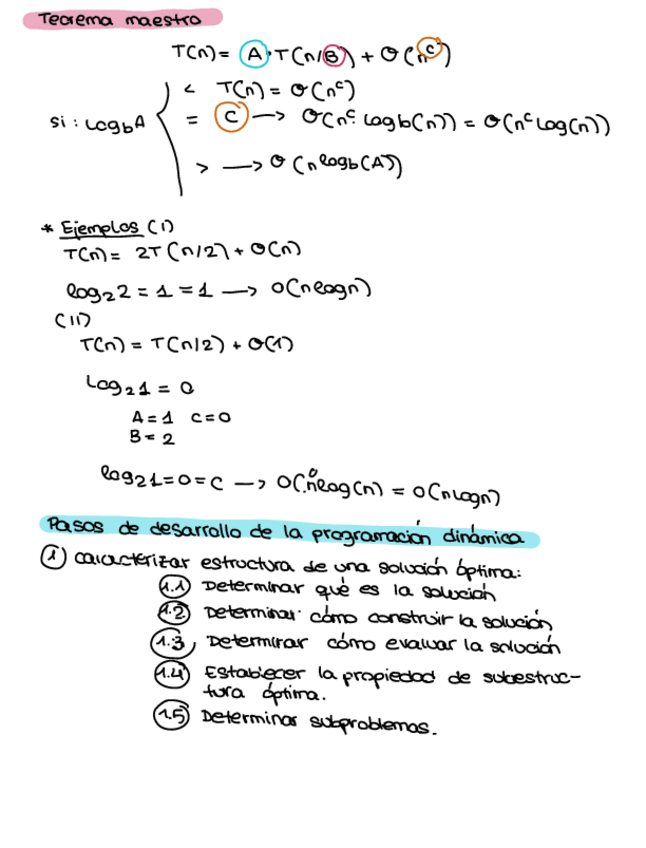 Teorema maestro
T(n) = A · T(n/B) + O(n^c)
si: log_b A
< T(n) = O(n^c)
= C → O(n^c · log_b(n)) = O(n^c log(n))
> → O(n^log_b(A))
* Ejemplos (I)
T(n) = 2T(n/2) + O(n)
log_2 2 = 1 = 1 → O(n log n)
(II)
T(n) = T(n/2) + O(1)
log_2 1 = 0
A = 1 C = 0
B = 2
log_2 1 = 0 = C → O(n^0 log(n) = O(n log n)
Pasos de desarrollo de la programación dinámica
① caracterizar estructura de una solución óptima:
1.1 Determinar qué es la solución
1.2 Determinar cómo construir la solución
1.3 Determinar cómo evaluar la solución
1.4 Establecer la propiedad de subestruc-
tura óptima.
1.5 Determinar subproblemas.